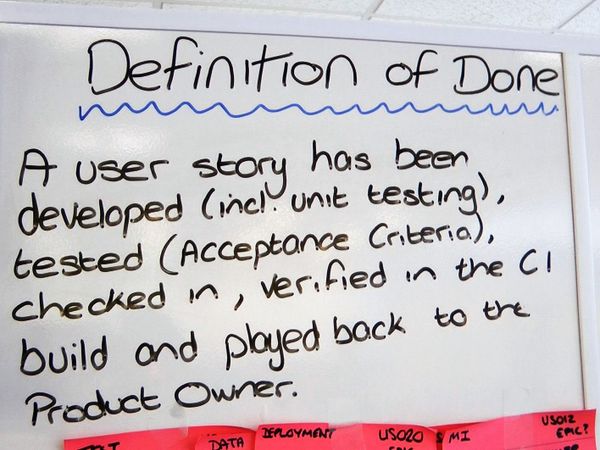 Definition of Done
A user story has been
developed (incl. unit testing),
tested (Acceptance Criteria),
checked in, verified in the CI
build and played back to the
Product Owner.
DATA
DEPLOYMENT
US020
MI
US012
EPIC?